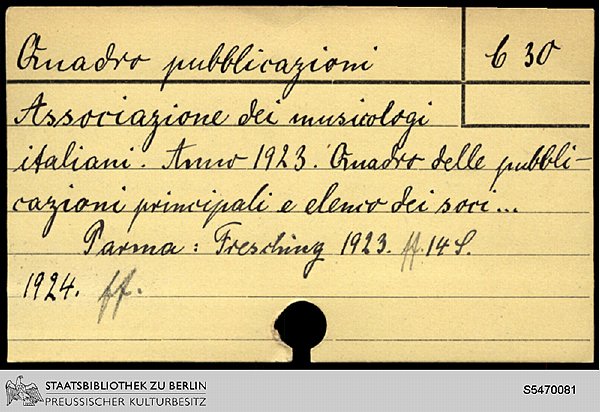 Quadro pubblicazioni
C 30
Associazione dei musicologi
italiani. Anno 1923. Quadro delle pubbli-
cazioni principali e elenco dei soci...
Parma: Fresching 1923. ff. 14 S.
1924. ff.
STAATSBIBLIOTHEK ZU BERLIN
PREUSSISCHER KULTURBESITZ
S5470081